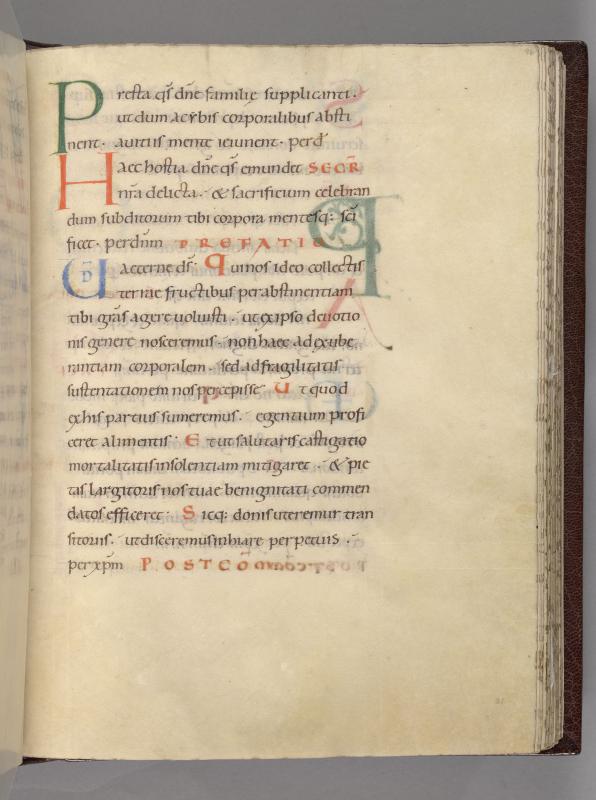 Presta qs̄ dn̄e familię supplicanti.
ut dum a cybis corporalibus absti
nent. a vitiis mente ieiunent. per d̄
Haec hostia dn̄e qs̄ emundet SECR̄
nr̄a delicta. & sacrificium celebran
dum subditorum tibi corpora mentesq: sc̄i
ficet. per dnm̄ PREFATIO
UD̄ aeterne ds̄. Qui nos ideo collectis
terrae fructibus per abstinentiam
tibi grās agere voluisti. ut ex ipso devotio
nis genere nosceremus. non haec ad exube
rantiam corporalem. sed ad fragilitatis
sustentationem nos percepisse Ut quod
ex his partius sumeremus. egentium profi
ceret alimentis. Et ut salutaris castigatio
mortalitatis insolentiam mitigaret. & pie
tas largitoris nos tuae benignitati commen
datos efficeret. Sicq: donis uteremur tran
sitoriis. ut disceremus inhiare perpetuis.
per xpm̄ POSTCOM̄